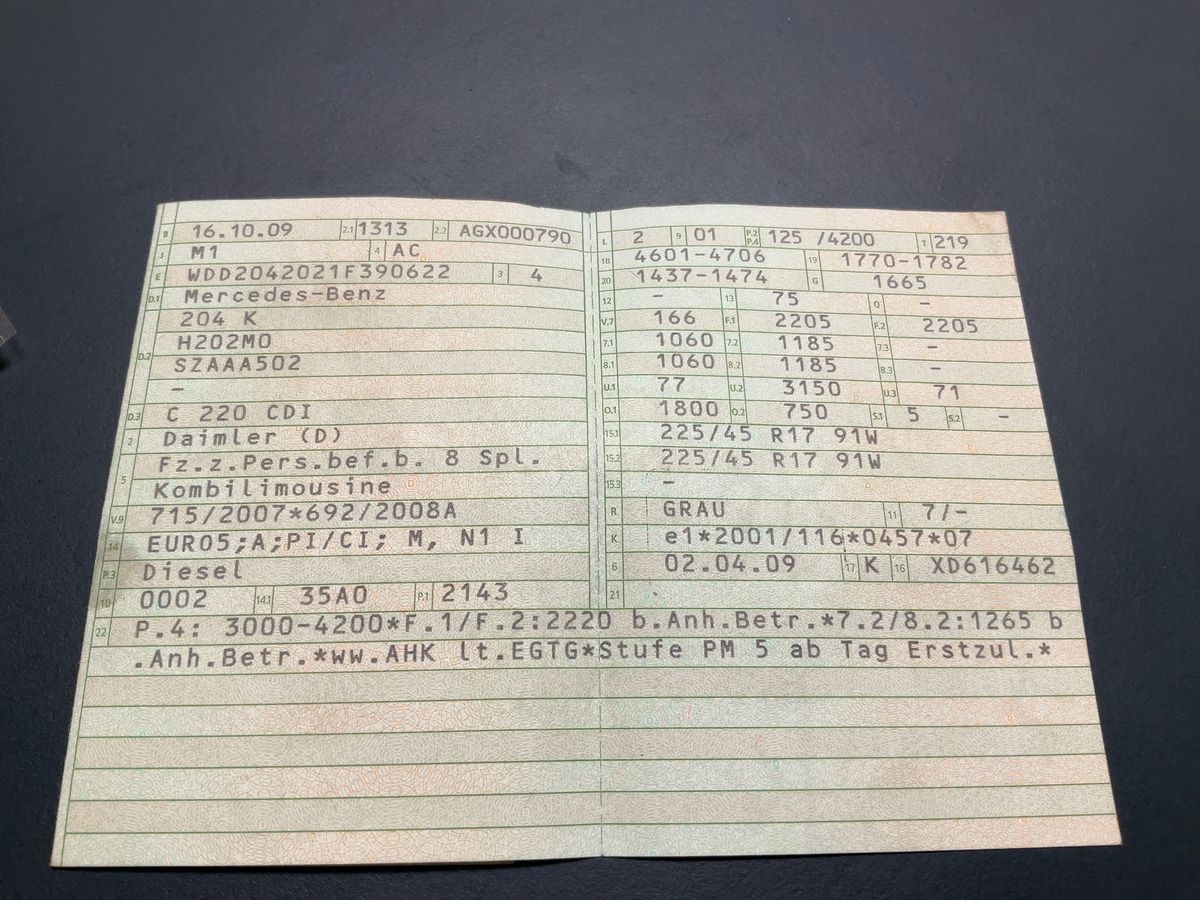 B 16.10.09 2.1 1313 2.2 AGX000790
J M1 4 AC
E WDD2042021F390622 3 4
D.1 Mercedes-Benz
204 K
D.2 H202M0
SZAAA502
–
D.3 C 220 CDI
2 Daimler (D)
5 Fz.z.Pers.bef.b. 8 Spl.
Kombilimousine
V.9 715/2007*692/2008A
14 EURO5;A;PI/CI; M, N1 I
P.3 Diesel
10 0002 14.1 35A0 P.1 2143
L 2 9 01 P.2 P.4 125 /4200 T 219
18 4601-4706 19 1770-1782
20 1437-1474 G 1665
12 – 13 75 Q –
V.7 166 F.1 2205 F.2 2205
7.1 1060 7.2 1185 7.3 –
8.1 1060 8.2 1185 8.3 –
U.1 77 U.2 3150 U.3 71
O.1 1800 O.2 750 S.1 5 S.2 –
15.1 225/45 R17 91W
15.2 225/45 R17 91W
15.3 –
R GRAU 11 7/-
K e1*2001/116*0457*07
6 02.04.09 17 K 16 XD616462
21
22 P.4: 3000-4200*F.1/F.2:2220 b.Anh.Betr.*7.2/8.2:1265 b
.Anh.Betr.*ww.AHK lt.EGTG*Stufe PM 5 ab Tag Erstzul.*